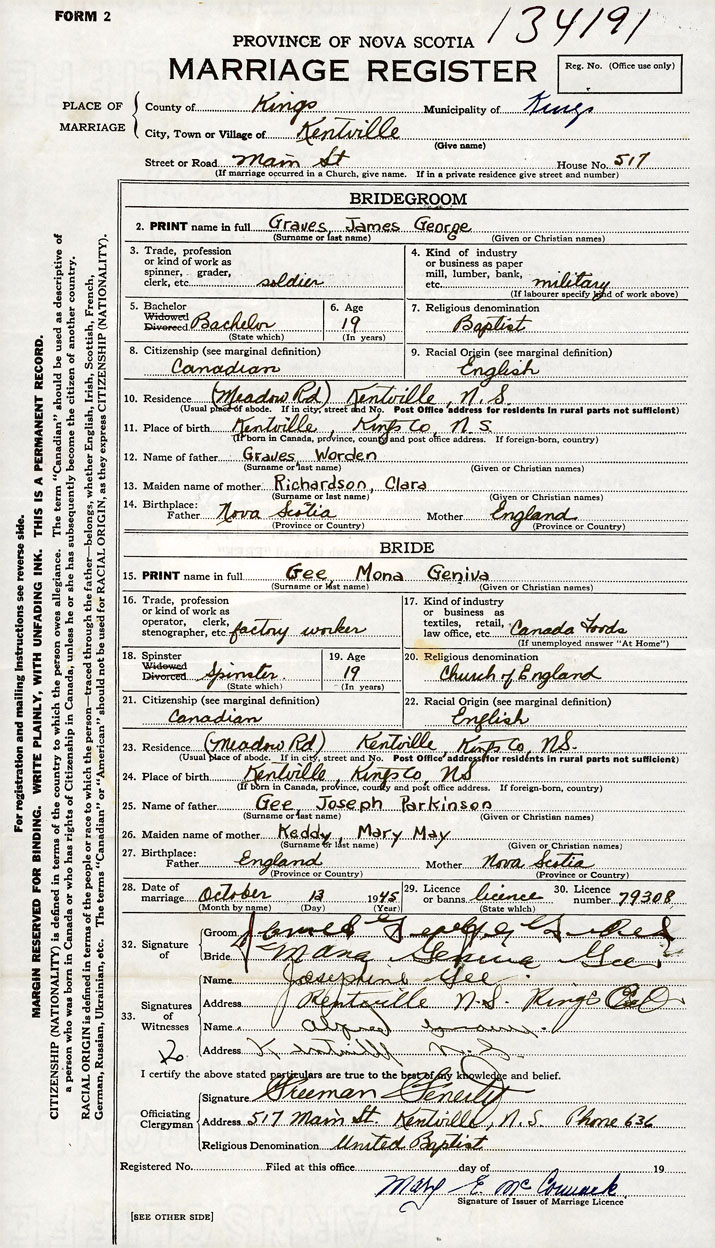 FORM 2
134191
PROVINCE OF NOVA SCOTIA
MARRIAGE REGISTER
Reg. No. (Office use only)
PLACE OF MARRIAGE
County of Kings Municipality of Kings
City, Town or Village of Kentville
(Give name)
Street or Road Main St House No. 517
(If marriage occurred in a Church, give name. If in a private residence give street and number)
BRIDEGROOM
2. PRINT name in full Graves, James George
(Surname or last name) (Given or Christian names)
3. Trade, profession
or kind of work as
spinner, grader,
clerk, etc. soldier
4. Kind of industry
or business as paper
mill, lumber, bank,
etc. military
(If labourer specify kind of work above)
5. Bachelor
Widowed
Divorced Bachelor
(State which)
6. Age
19
(In years)
7. Religious denomination
Baptist
8. Citizenship (see marginal definition)
Canadian
9. Racial Origin (see marginal definition)
English
10. Residence (Meadow Rd) Kentville, N.S.
(Usual place of abode. If in city, street and No. Post Office address for residents in rural parts not sufficient)
11. Place of birth Kentville, Kings Co, N S
(If born in Canada, province, county and post office address. If foreign-born, country)
12. Name of father Graves, Worden
(Surname or last name) (Given or Christian names)
13. Maiden name of mother Richardson, Clara
(Surname or last name) (Given or Christian names)
14. Birthplace:
Father Nova Scotia Mother England
(Province or Country) (Province or Country)
BRIDE
15. PRINT name in full Gee, Mona Geniva
(Surname or last name) (Given or Christian names)
16. Trade, profession
or kind of work as
operator, clerk,
stenographer, etc. factory worker
17. Kind of industry
or business as
textiles, retail,
law office, etc. Canada Foods
(If unemployed answer "At Home")
18. Spinster
Widowed
Divorced Spinster
(State which)
19. Age
19
(In years)
20. Religious denomination
Church of England
21. Citizenship (see marginal definition)
Canadian
22. Racial Origin (see marginal definition)
English
23. Residence (Meadow Rd) Kentville, Kings Co, NS.
(Usual place of abode. If in city, street and No. Post Office address for residents in rural parts not sufficient)
24. Place of birth Kentville, Kings Co, NS
(If born in Canada, province, county and post office address. If foreign-born, country)
25. Name of father Gee, Joseph Parkinson
(Surname or last name) (Given or Christian names)
26. Maiden name of mother Keddy, Mary May
(Surname or last name) (Given or Christian names)
27. Birthplace:
Father England Mother Nova Scotia
(Province or Country) (Province or Country)
28. Date of
marriage October 13 1945
(Month by name) (Day) (Year)
29. Licence
or banns licence
(State which)
30. Licence
number 79308
32. Signature of
Groom James George Graves
Bride Mona Geniva Gee
33. Signatures of Witnesses
Name Josephine Gee
Address Kentville N.S. Kings Co
Name Alfred
Address Kentville N.S.
I certify the above stated particulars are true to the best of my knowledge and belief.
Officiating Clergyman
Signature Freeman Fenerty
Address 517 Main St. Kentville, N.S. Phone 636
Religious Denomination United Baptist
Registered No. Filed at this office day of 19
Mary E. McCormack
Signature of Issuer of Marriage Licence
[SEE OTHER SIDE]
For registration and mailing instructions see reverse side.
MARGIN RESERVED FOR BINDING. WRITE PLAINLY, WITH UNFADING INK. THIS IS A PERMANENT RECORD.
CITIZENSHIP (NATIONALITY) is defined in terms of the country to which the person owes allegiance. The term "Canadian" should be used as descriptive of
a person who was born in Canada or who has rights of Citizenship in Canada, unless he or she has subsequently become the citizen of another country.
RACIAL ORIGIN is defined in terms of the people or race to which the person—traced through the father—belongs, whether English, Irish, Scottish, French,
German, Russian, Ukrainian, etc. The terms "Canadian" or "American" should not be used for RACIAL ORIGIN, as they express CITIZENSHIP (NATIONALITY).